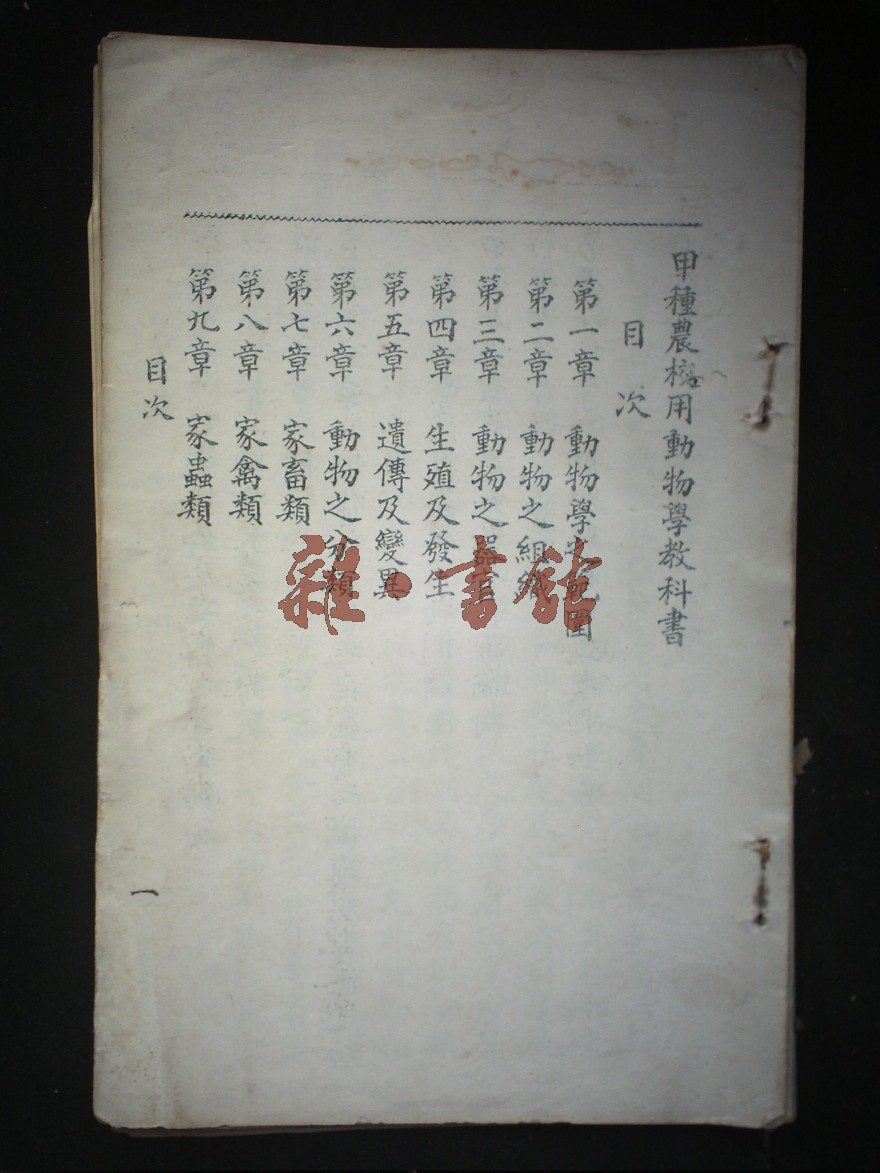 甲種農校用動物學教科書
目次
第一章 動物學之範圍
第二章 動物之組織
第三章 動物之器官
第四章 生殖及發生
第五章 遺傳及變異
第六章 動物之分類
第七章 家畜類
第八章 家禽類
第九章 家蟲類
目次
一
雜·書館